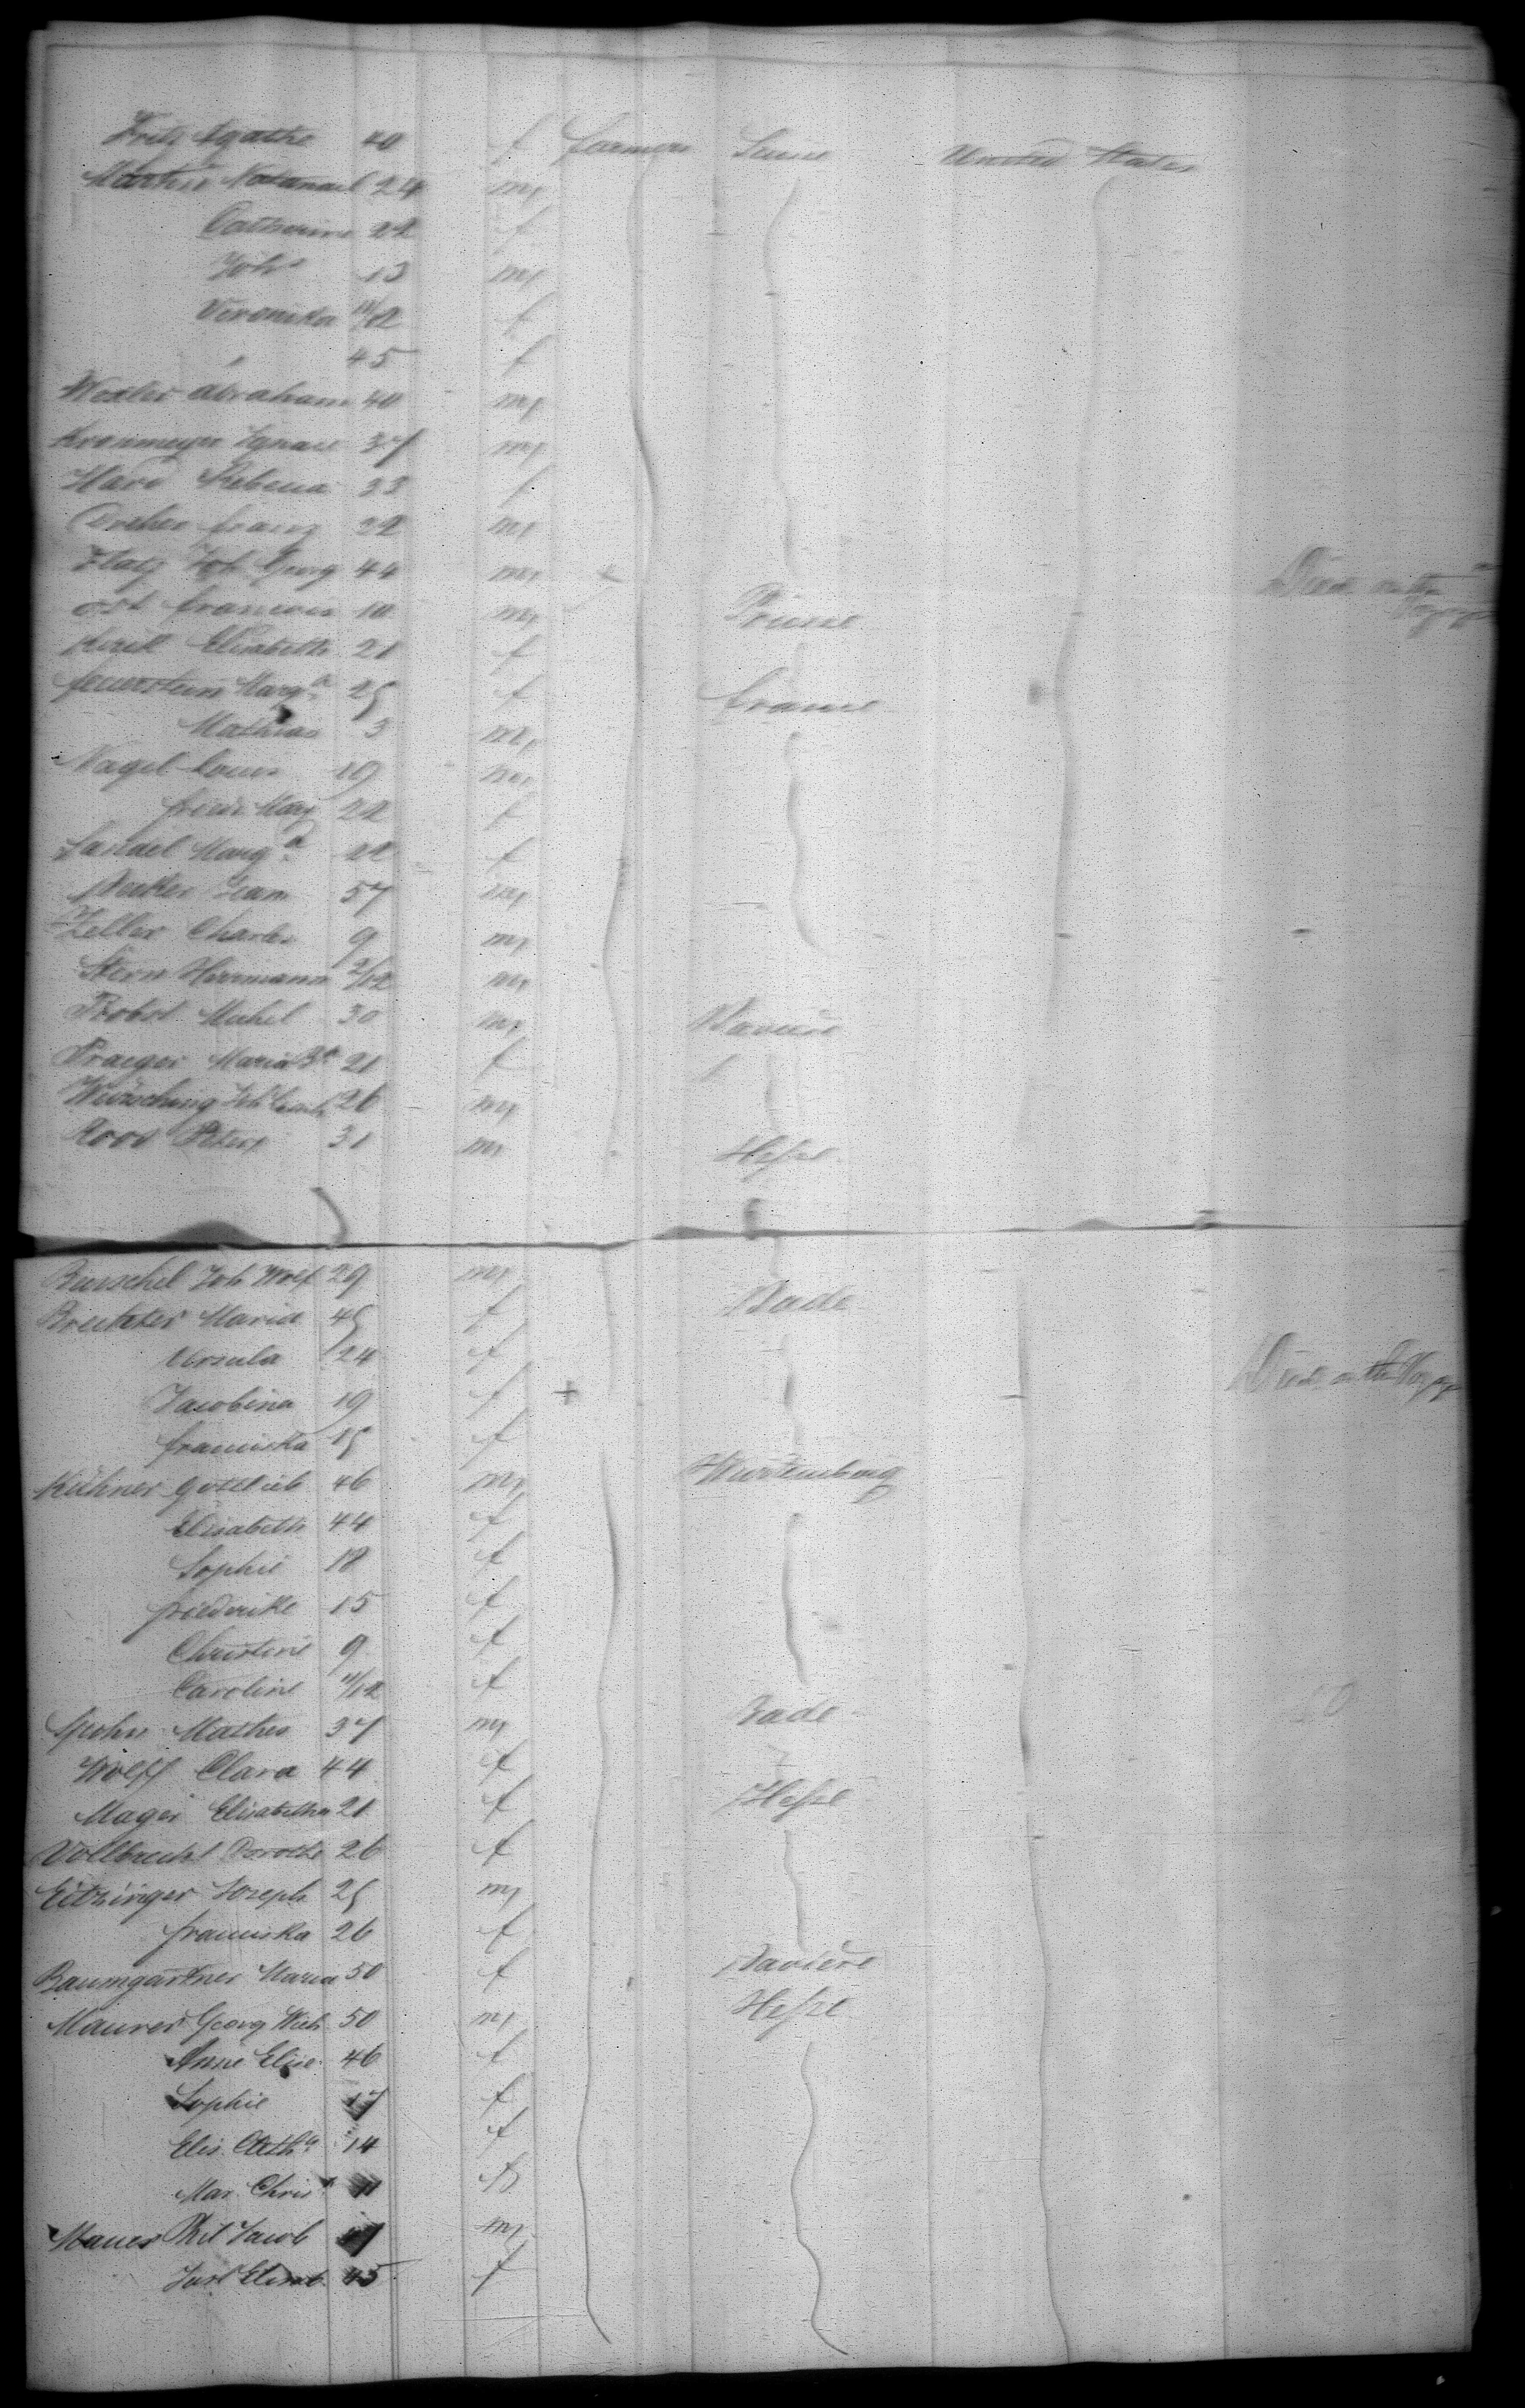 Fritz Agathe 40 f farmers Suisse United States
Martin Natanael 24 m
Catherine 22 f
Joh 13 m
Veronika 11/12 f
" 45 f
Wexler Abraham 40 m
Kronmeyer Ignace 37 m
33 f
franz 22 m
Platz Joh Georg 44 m + Died on the Voyage
Ost francois 10 m Prusse
Elisabeth 21 f
feuerstein Marg.a 25 f france
Mathias 3 m
Nagel Louis 19 m
Marg 22 f
Marg.a 22 f
Becker Jean 57 m
Zeller Charles 9 m
Stern Herrmann 2/12 m
Probst Michel 30 m Baviere
Praeger Maria 21 f
Würsching Joh 26 m
Rood Peter 31 m Hesse
Burschel Joh Wolf 29 m
Brechter Maria 45 f Bade
Ursula 24 f
Jacobina 19 f + Died on the Voyage
franciska 15 f
Kühner Gottlieb 46 m Wurtemberg
Elisabeth 44 f
Sophie 18 f
friederike 15 f
Christine 9 f
Caroline 11/12 f
Spohn Mathes 37 m Bade
Wolff Clara 44 f
Mager Elisabetha 21 f Hesse
Vollbrecht Dorothe 26 f
Eitzinger Joseph 25 m
franciska 26 f
Baumgartner Maria 50 f Baviere
Maurer Georg Wilh 50 m Hesse
Anne Elise 46 f
Sophie 17 f
Elis. Cath.a 14 f
Mar. Chris.a 11 f
Mauer Phil Jacob m
Elisab. 45 f